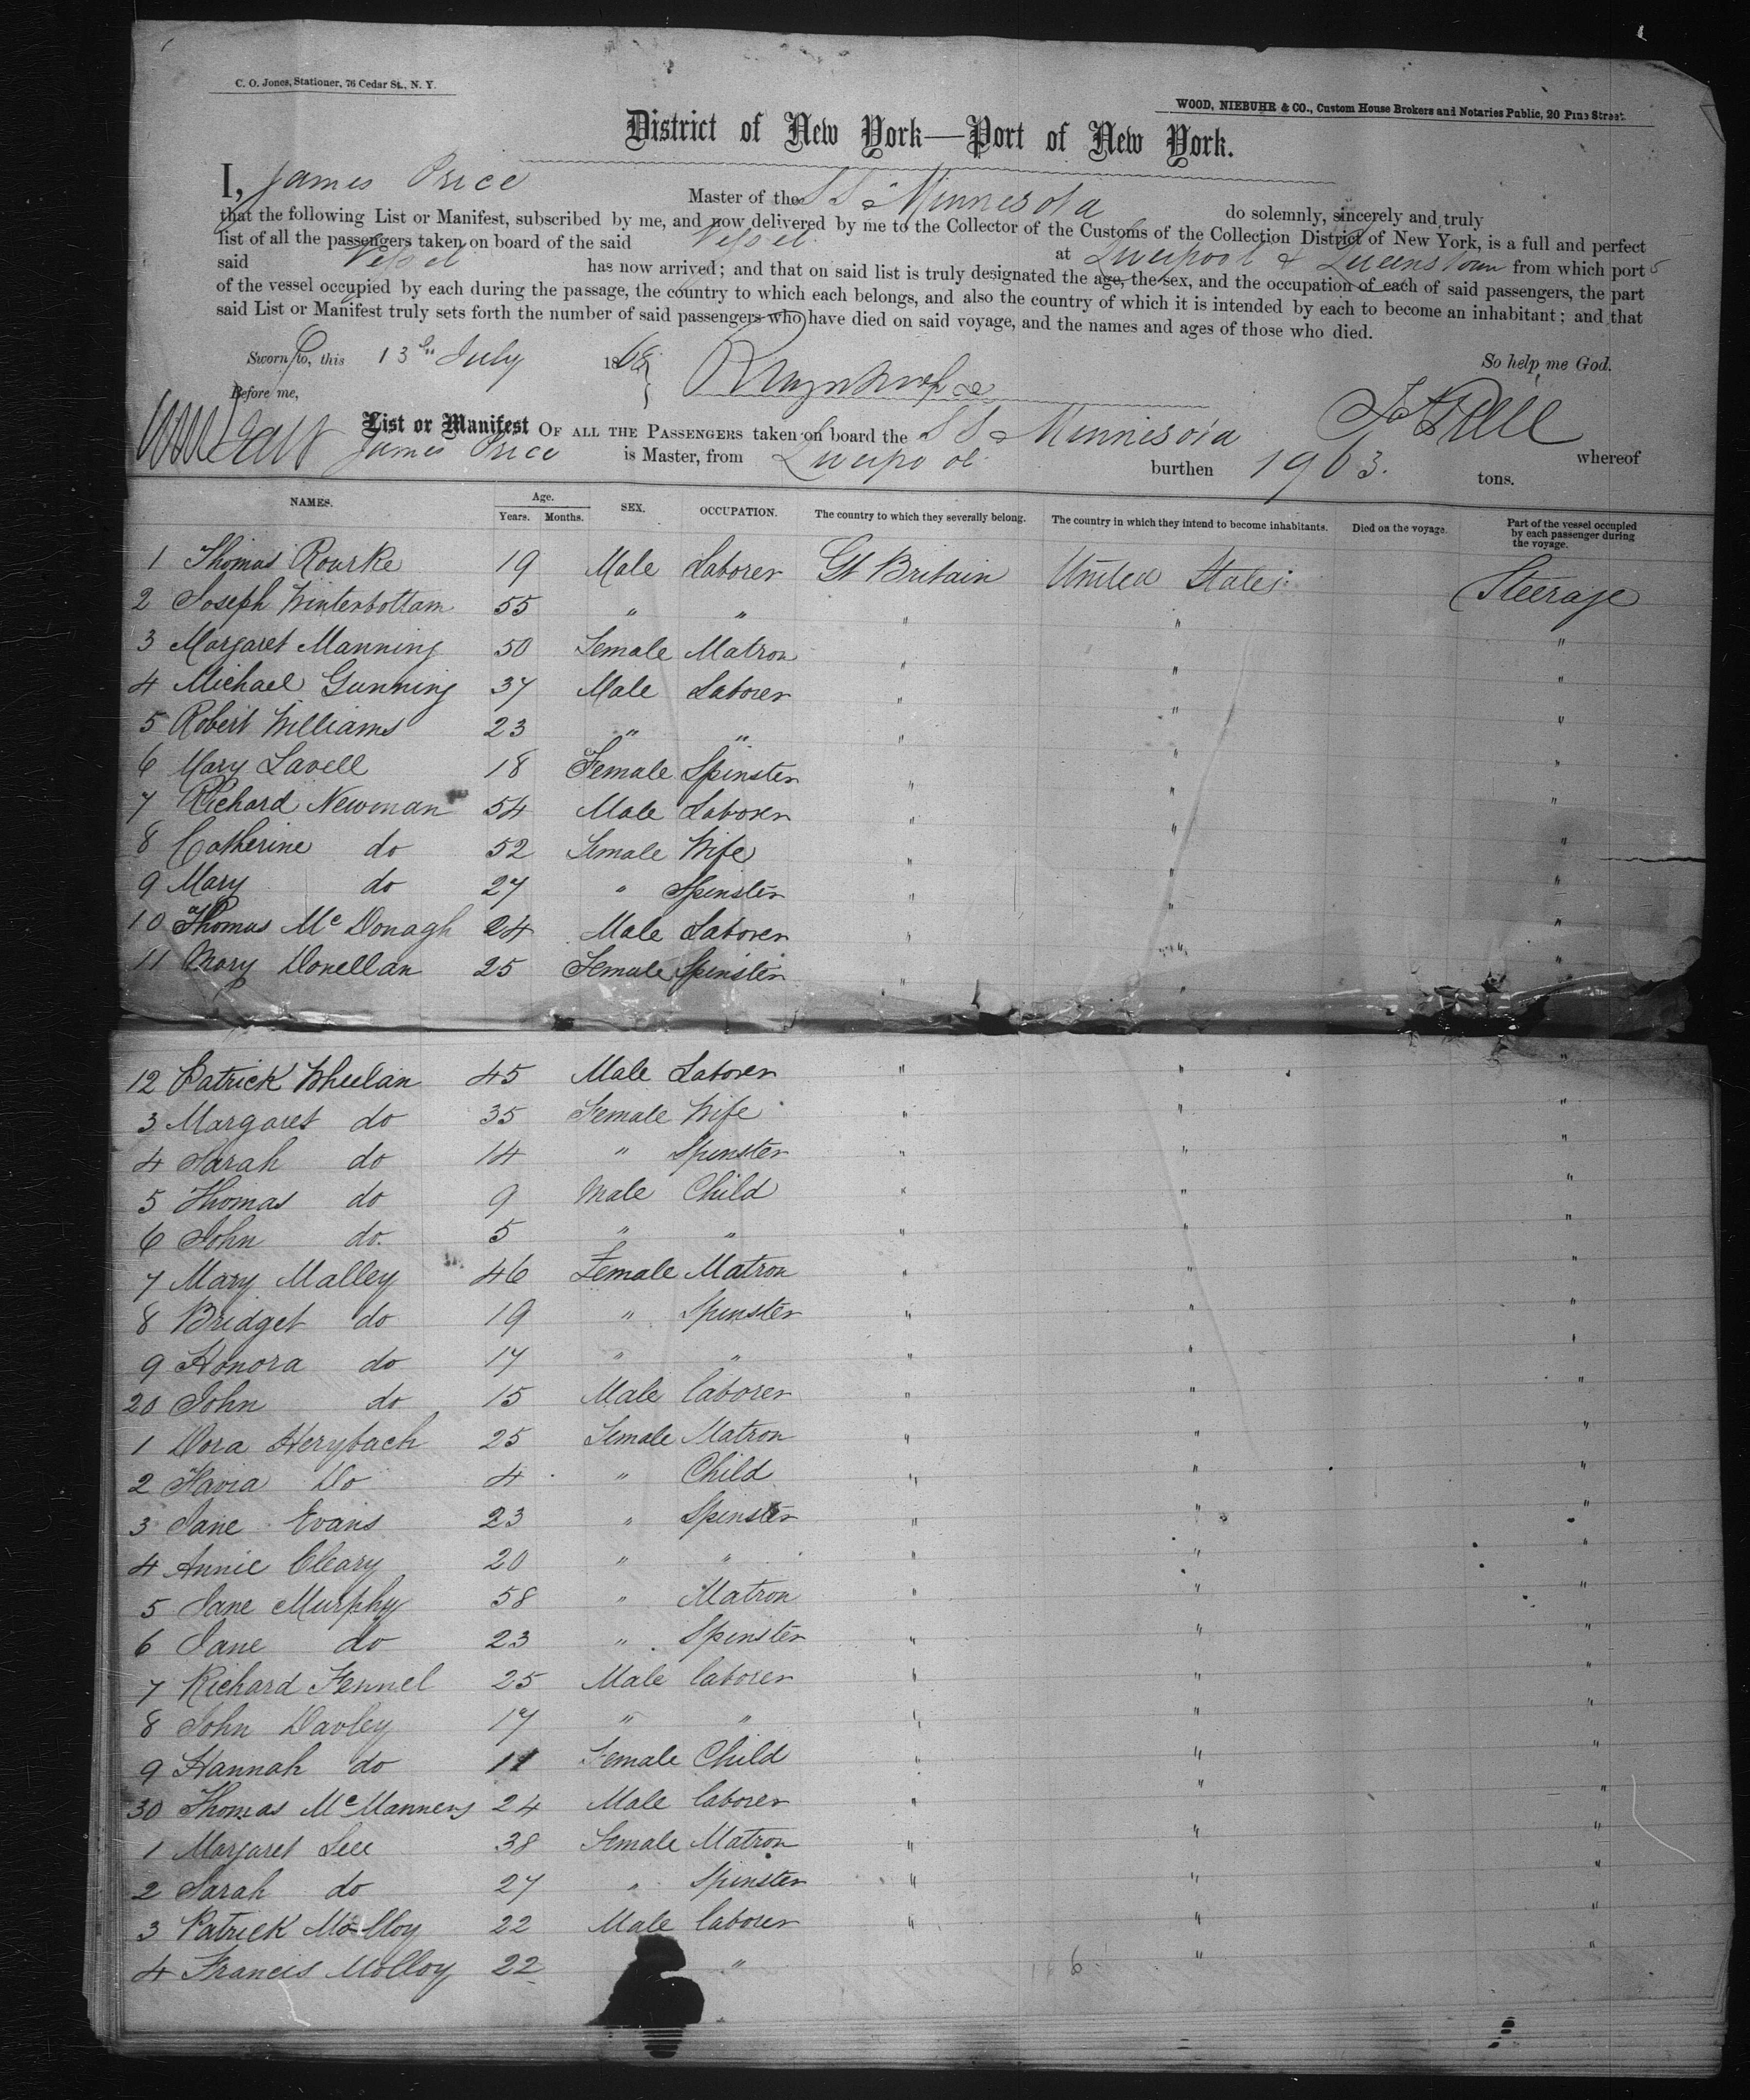 C. O. Jones, Stationer, 76 Cedar St., N. Y.
WOOD, NIEBUHR & CO., Custom House Brokers and Notaries Public, 20 Pine Street.
District of New York—Port of New York.
I, James Price Master of the S S Minnesota do solemnly, sincerely and truly
that the following List or Manifest, subscribed by me, and now delivered by me to the Collector of the Customs of the Collection District of New York, is a full and perfect
list of all the passengers taken on board of the said Vessel at Liverpool & Queenstown from which ports
said Vessel has now arrived; and that on said list is truly designated the age, the sex, and the occupation of each of said passengers, the part
of the vessel occupied by each during the passage, the country to which each belongs, and also the country of which it is intended by each to become an inhabitant; and that
said List or Manifest truly sets forth the number of said passengers who have died on said voyage, and the names and ages of those who died.
Sworn to, this 13th July 1868 So help me God.
Before me,
List or Manifest OF ALL THE PASSENGERS taken on board the S S Minnesota whereof
James Price is Master, from Liverpool burthen 1963. tons.
NAMES. Age. Years. Months. SEX. OCCUPATION. The country to which they severally belong. The country in which they intend to become inhabitants. Died on the voyage. Part of the vessel occupied by each passenger during the voyage.
1 Thomas Rourke 19 Male Laborer Gt Britain United States Steerage
2 Joseph Winterbottam 55 " " " " "
3 Margaret Manning 50 Female Matron " " "
4 Michael Gunning 37 Male Laborer " " "
5 Robert Williams 23 " " " " "
6 Mary Lavell 18 Female Spinster " " "
7 Richard Newman 54 Male Laborer " " "
8 Catherine do 52 Female Wife " " "
9 Mary do 27 " Spinster " " "
10 Thomas McDonagh 24 Male Laborer " " "
11 Mary Donellan 25 Female Spinster " " "
12 Patrick Wheelan 45 Male Laborer " " "
3 Margaret do 35 Female Wife " " "
4 Sarah do 14 " Spinster " " "
5 Thomas do 9 Male Child " " "
6 John do. 5 " " " " "
7 Mary Malley 46 Female Matron " " "
8 Bridget do 19 " Spinster " " "
9 Honora do 17 " " " " "
20 John do 15 Male laborer " " "
1 Dora Herybach 25 Female Matron " " "
2 Flavia Do 4 " Child " " "
3 Jane Evans 23 " Spinster " " "
4 Annie Cleary 20 " " " " "
5 Jane Murphy 58 " Matron " " "
6 Jane do 23 " Spinster " " "
7 Richard Fennel 25 Male laborer " " "
8 John Davley 17 " " " " "
9 Hannah do 11 Female Child " " "
30 Thomas McManners 24 Male laborer " " "
1 Margaret Lee 38 Female Matron " " "
2 Sarah do 27 " Spinster " " "
3 Patrick Molloy 22 Male laborer " " "
4 Francis Molloy 22 " " "